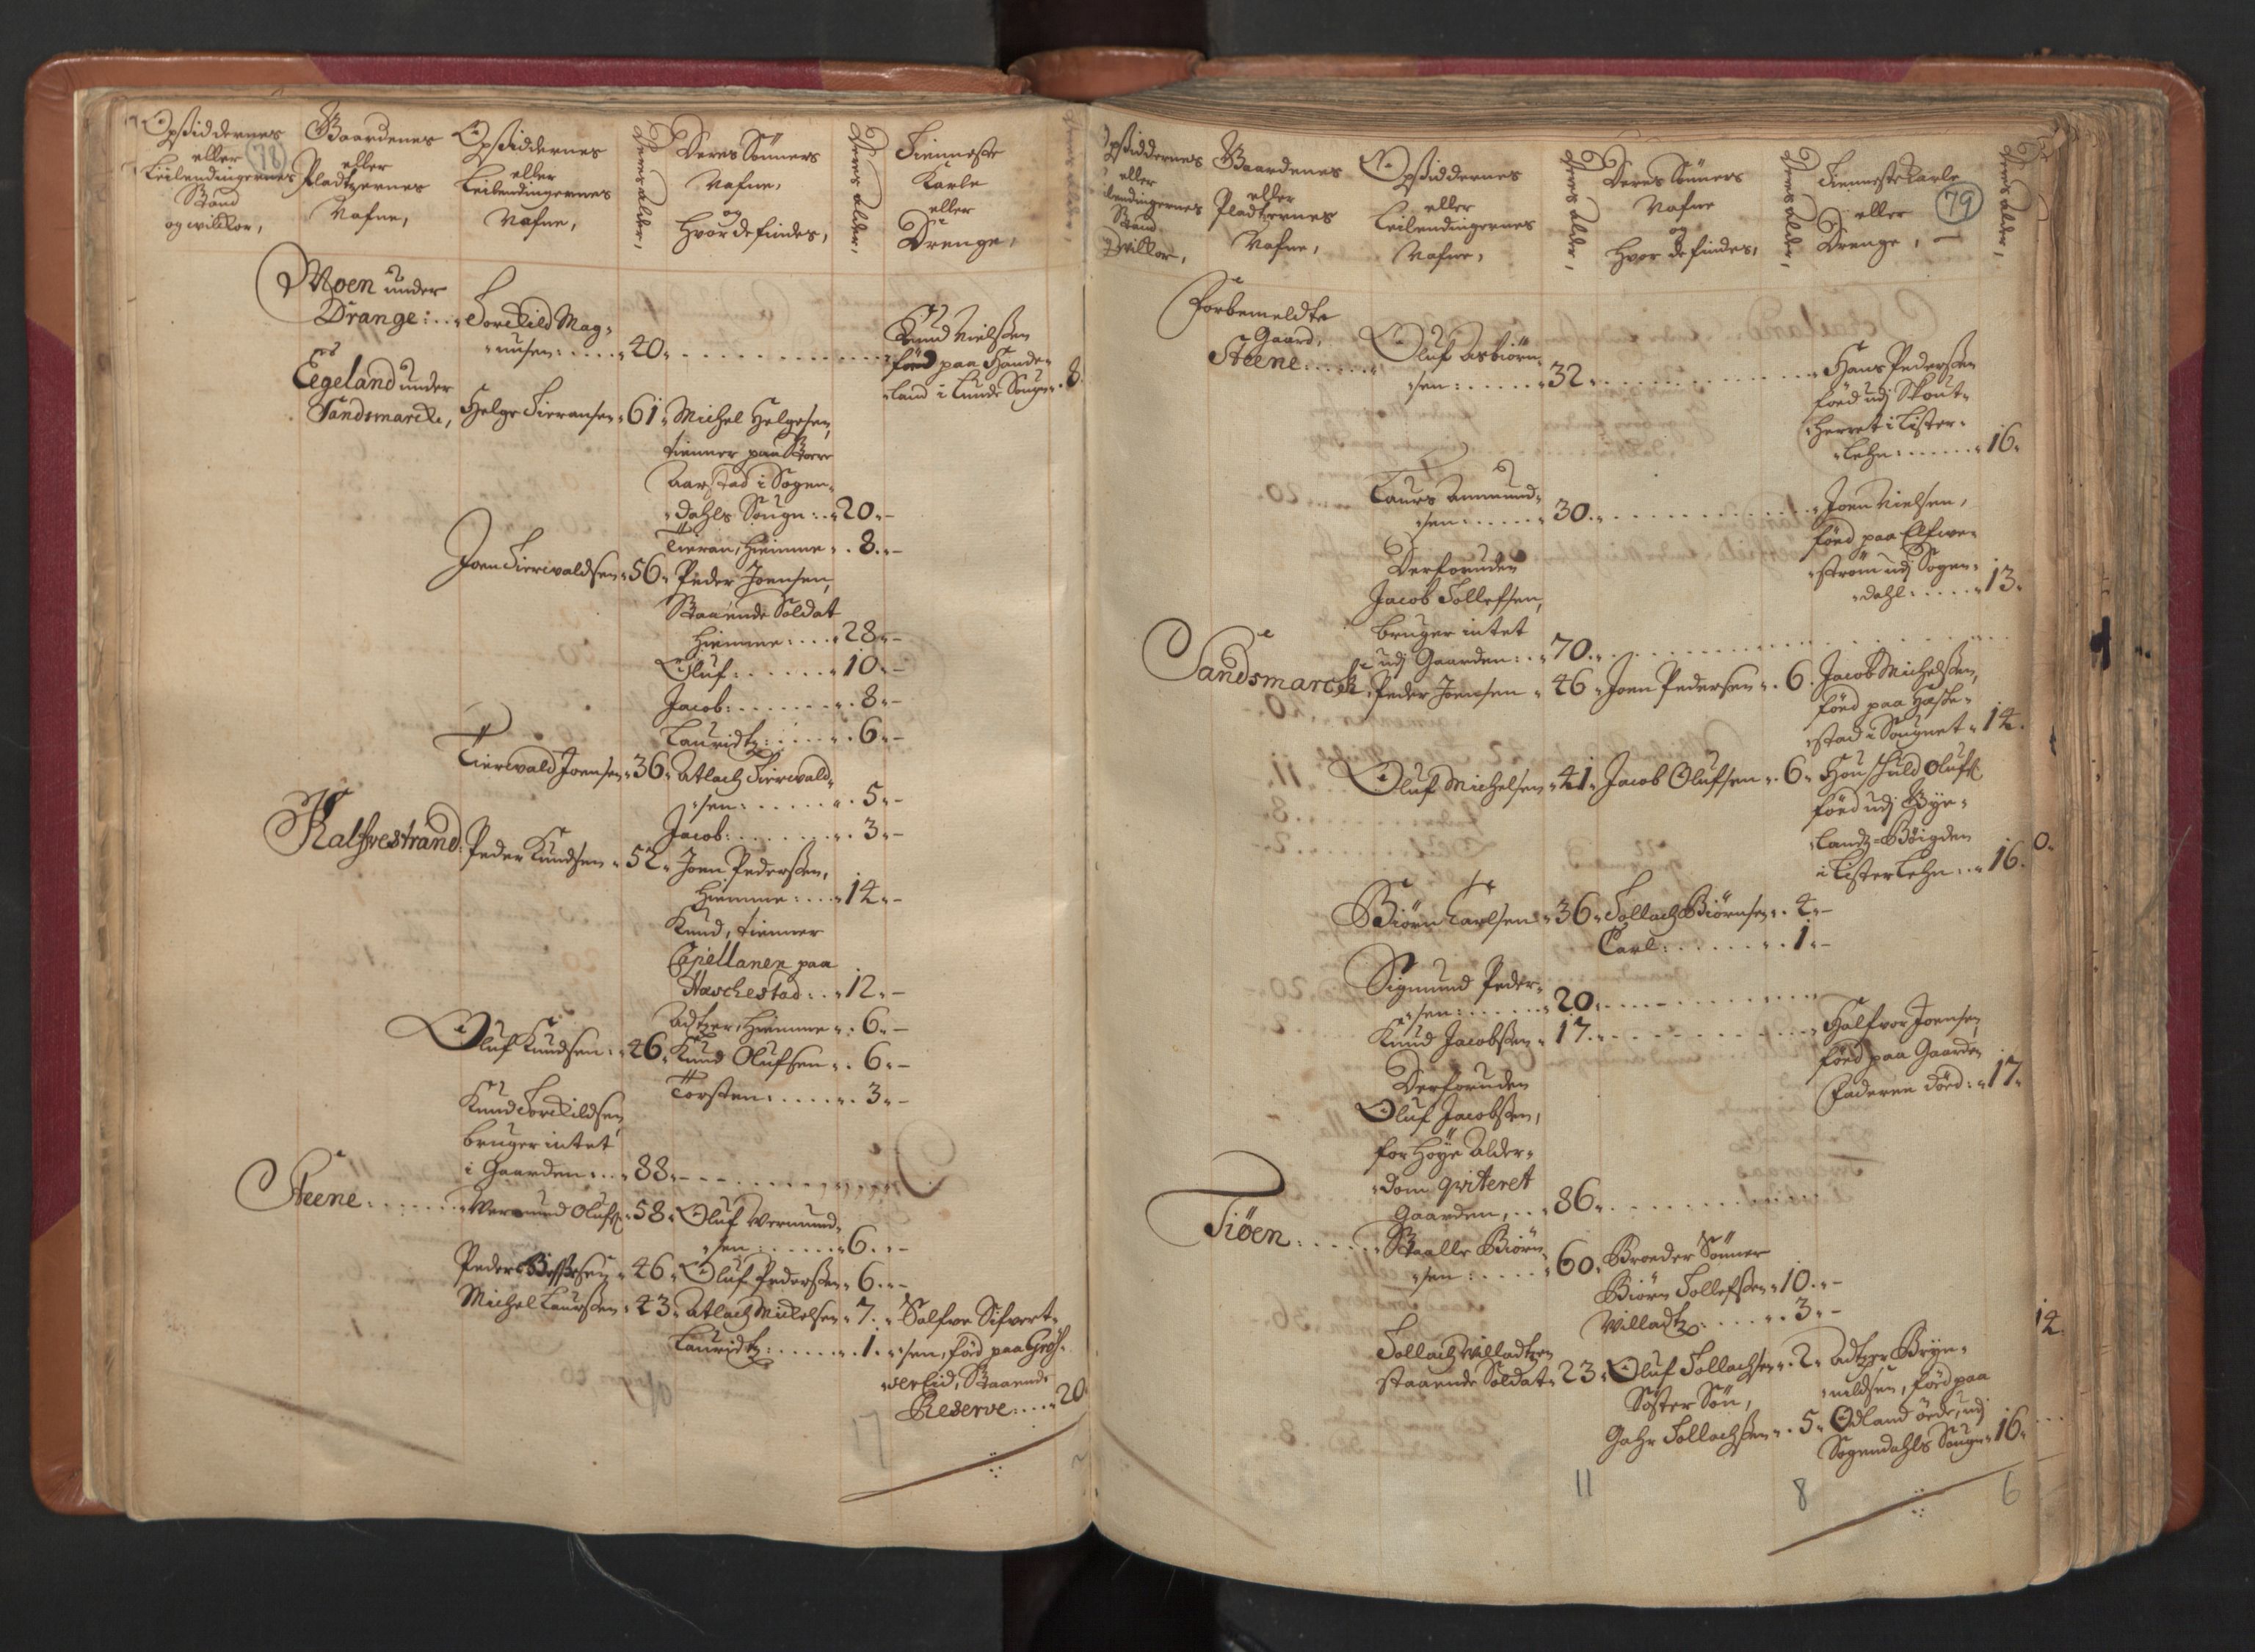 Opsiddernes
eller
Leilendingernes
Stand
og wilkor,
78
Gaardenes
eller
Pladtzernes
Nafne,
Opsiddernes
eller
Leilendingernes
Nafne,
Deres alder,
Deres Sönners
Nafne,
og
Hvor de findes,
Deres alder,
Tienneste
Karle
eller
Drenge,
Deres alder,
Moen under
Drange: . . Torckild Mag-
nusen: . . . . 40.
Knud Nielsen
föed paa Hande-
land i Lunde Sougn . 8.
Eegeland under
Sandsmarck, Helge Tieransen . 61. Michel Helgesen,
tienner paa Store
Aarstad i Sogen-
dahls Sougn: . . 20. -
Tieran, Hiemme . . 8. -
Joen Tierwaldsen . 56. Peder Joensen,
Staaende Soldat
Hiemme: . . . 28. -
Oluf: . . . . . . 10. -
Jacob: . . . . . . 8. -
Lauridtz: . . . . 6. -
Tierwald Joensen . 36. Atlach Tierwald-
sen: . . . . . . 5. -
Jacob: . . . . . . 3. -
Kalfvestrand: Peder Knudsen . 52. Joen Pedersen,
Hiemme: . . . 14. -
Knud, tienner
Capellanen paa
Hæschestad: . . 12. -
Adtzer, Hiemme . . 6. -
Oluf Knudsen: . 46. Knud Olufsen . . 6. -
Torsten: . . . . . 3. -
Knud Torckildsen
bruger intet
i Gaarden: . . . 88. -
Steene: . . . . . . Wermund Olufs: . 58. Oluf Wermund-
sen: . . . . . 6. -
Peder . 46. Oluf Pedersen . 6. -
Michel Laursen . 43. Atlach Mickelsen . 7. Salfve Sifvert-
Lauridtz: . . . . . 1. sen, föd paa
Staaende
Reserve: . . . 20.
Opsiddernes
eller
Leilendingernes
Stand
og wilkor,
Gaardenes
eller
Pladtzernes
Nafne,
Opsiddernes
eller
Leilendingernes
Nafne,
Deres alder,
Deres Sönners
Nafne
og
Hvor de findes,
Deres alder,
Tienneste Karle
eller
Drenge,
79
Deres alder,
Forbemeldte
Gaard,
Steene . . . . . . Oluf Asbiörn-
sen: . . . . . . 32.
Hans Pedersen
föed udj
Herret i Lister-
Lehn: . . . . . . 16.
Laurs Ammund-
sen: . . . . . . 30.
Joen Nielsen,
föed paa
ström udj Sogen-
dahl: . . . . . 13.
Derforuden
Jacob Tollefsen,
bruger intet
udj Gaarden: . . 70.
Sandsmarck: Peder Joensen . 46. Joen Pedersen . . 6. Jacob Michelsen,
föed paa Hæske-
stad i Sougnet . 14.
Oluf Michelsen . 41. Jacob Olufsen . . 6. Oluf:
föed udj Bÿe-
landz Böigden
i Lister Lehn: . . 16.
Biörn Carlsen . 36. Tollach Biörnsen . . 4. -
Carl: . . . . . . . 1. -
Sigmund Peder-
sen: . . . . . . 20.
Knud Jacobsen . 17.
Halfvor Joensen
föed paa Gaarden
Faderen döed: . 17.
Derforuden
Oluf Jacobsen,
for Höye Alder-
dom qviteret
Gaarden, . . . 86.
Tiöen: . . . . . Staalle Biörn-
sen: . . . . . 60. Broeder Sönner
Biörn Tollefsen . 10. -
Willadtz: . . . . 3. -
Tollach Willadtzen
staaende Soldat . 23. Oluf Tollachsen . . 2. Adtzer Brÿn-
ildsen, föed paa
Söster Sön,
Gahr Tollachsen . . 5. Ödland öede, udj
Sogendahls Sougn . 16.
0.
14.
11
8
6